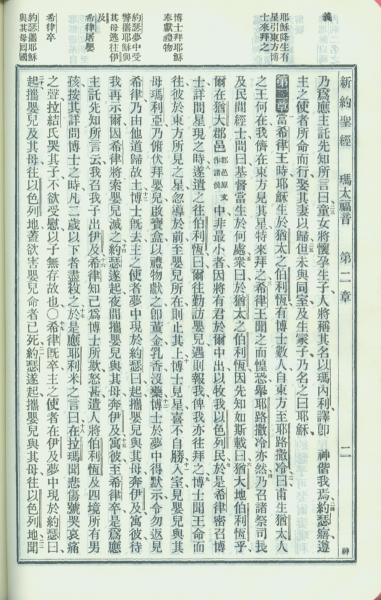 義
耶穌降生有
星引東方博
士來拜之
博士拜耶穌
奉獻禮物
約瑟夢中受
警攜耶穌與
其母逃往伊
及
希律屠嬰
希律卒
約瑟攜耶穌
與其母回國
新約聖經 瑪太福音 第二章 二 神
乃爲應主託先知所言曰童女將懷孕生子人將稱其名以瑪內利譯卽 神偕我焉約瑟寤遵
主之使者所命而行娶其妻以歸但未與同室及生冢子乃名之曰耶穌
第二章當希律王時耶穌生於猶太之伯利恆有博士數人自東方至耶路撒冷曰甫生猶太人
之王何在我儕在東方見其星特來拜之希律王聞之而惶恐舉耶路撒冷亦然乃召諸祭司長
及民間經士問曰基督當生於何處衆曰於猶太之伯利恆因先知如斯載曰猶大地伯利恆乎
爾在猶大郡邑郡邑原文作諸侯中非最小者因將有君於爾中出以牧我以色列民於是希律密召博
士詳問星現之時遂遣之往伯利恆曰爾往勤訪嬰兒遇則報我俾我亦往拜之博士聞王命而
往彼於東方所見之星忽導於前至嬰兒所在則止其上博士見星喜不自勝入室見嬰兒與其
母瑪利亞乃俯伏拜嬰兒啟寶盒以禮物獻之卽黃金乳香沒藥博士於夢中得默示令勿返見
希律乃由他道歸故土博士旣去主之使者夢中現於約瑟曰起攜嬰兒與其母奔伊及寓彼待
我再示爾因希律將索嬰兒滅之約瑟遂起夜間攜嬰兒與其母奔伊及寓彼至希律卒是爲應
主託先知所言云我召我子出伊及希律知己爲博士所欺怒甚遣人將伯利恆及四境所有男
孩按其詳問博士之時凡二歲以下者盡殺之於是應耶利米之言曰在拉瑪聞悲傷號哭哀痛
之聲拉結氏哭其子不欲受慰以子無存故也○希律旣卒主之使者在伊及夢中現於約瑟曰
起攜嬰兒及其母往以色列地蓋欲害嬰兒命者已死約瑟遂起攜嬰兒與其母往以色列地聞